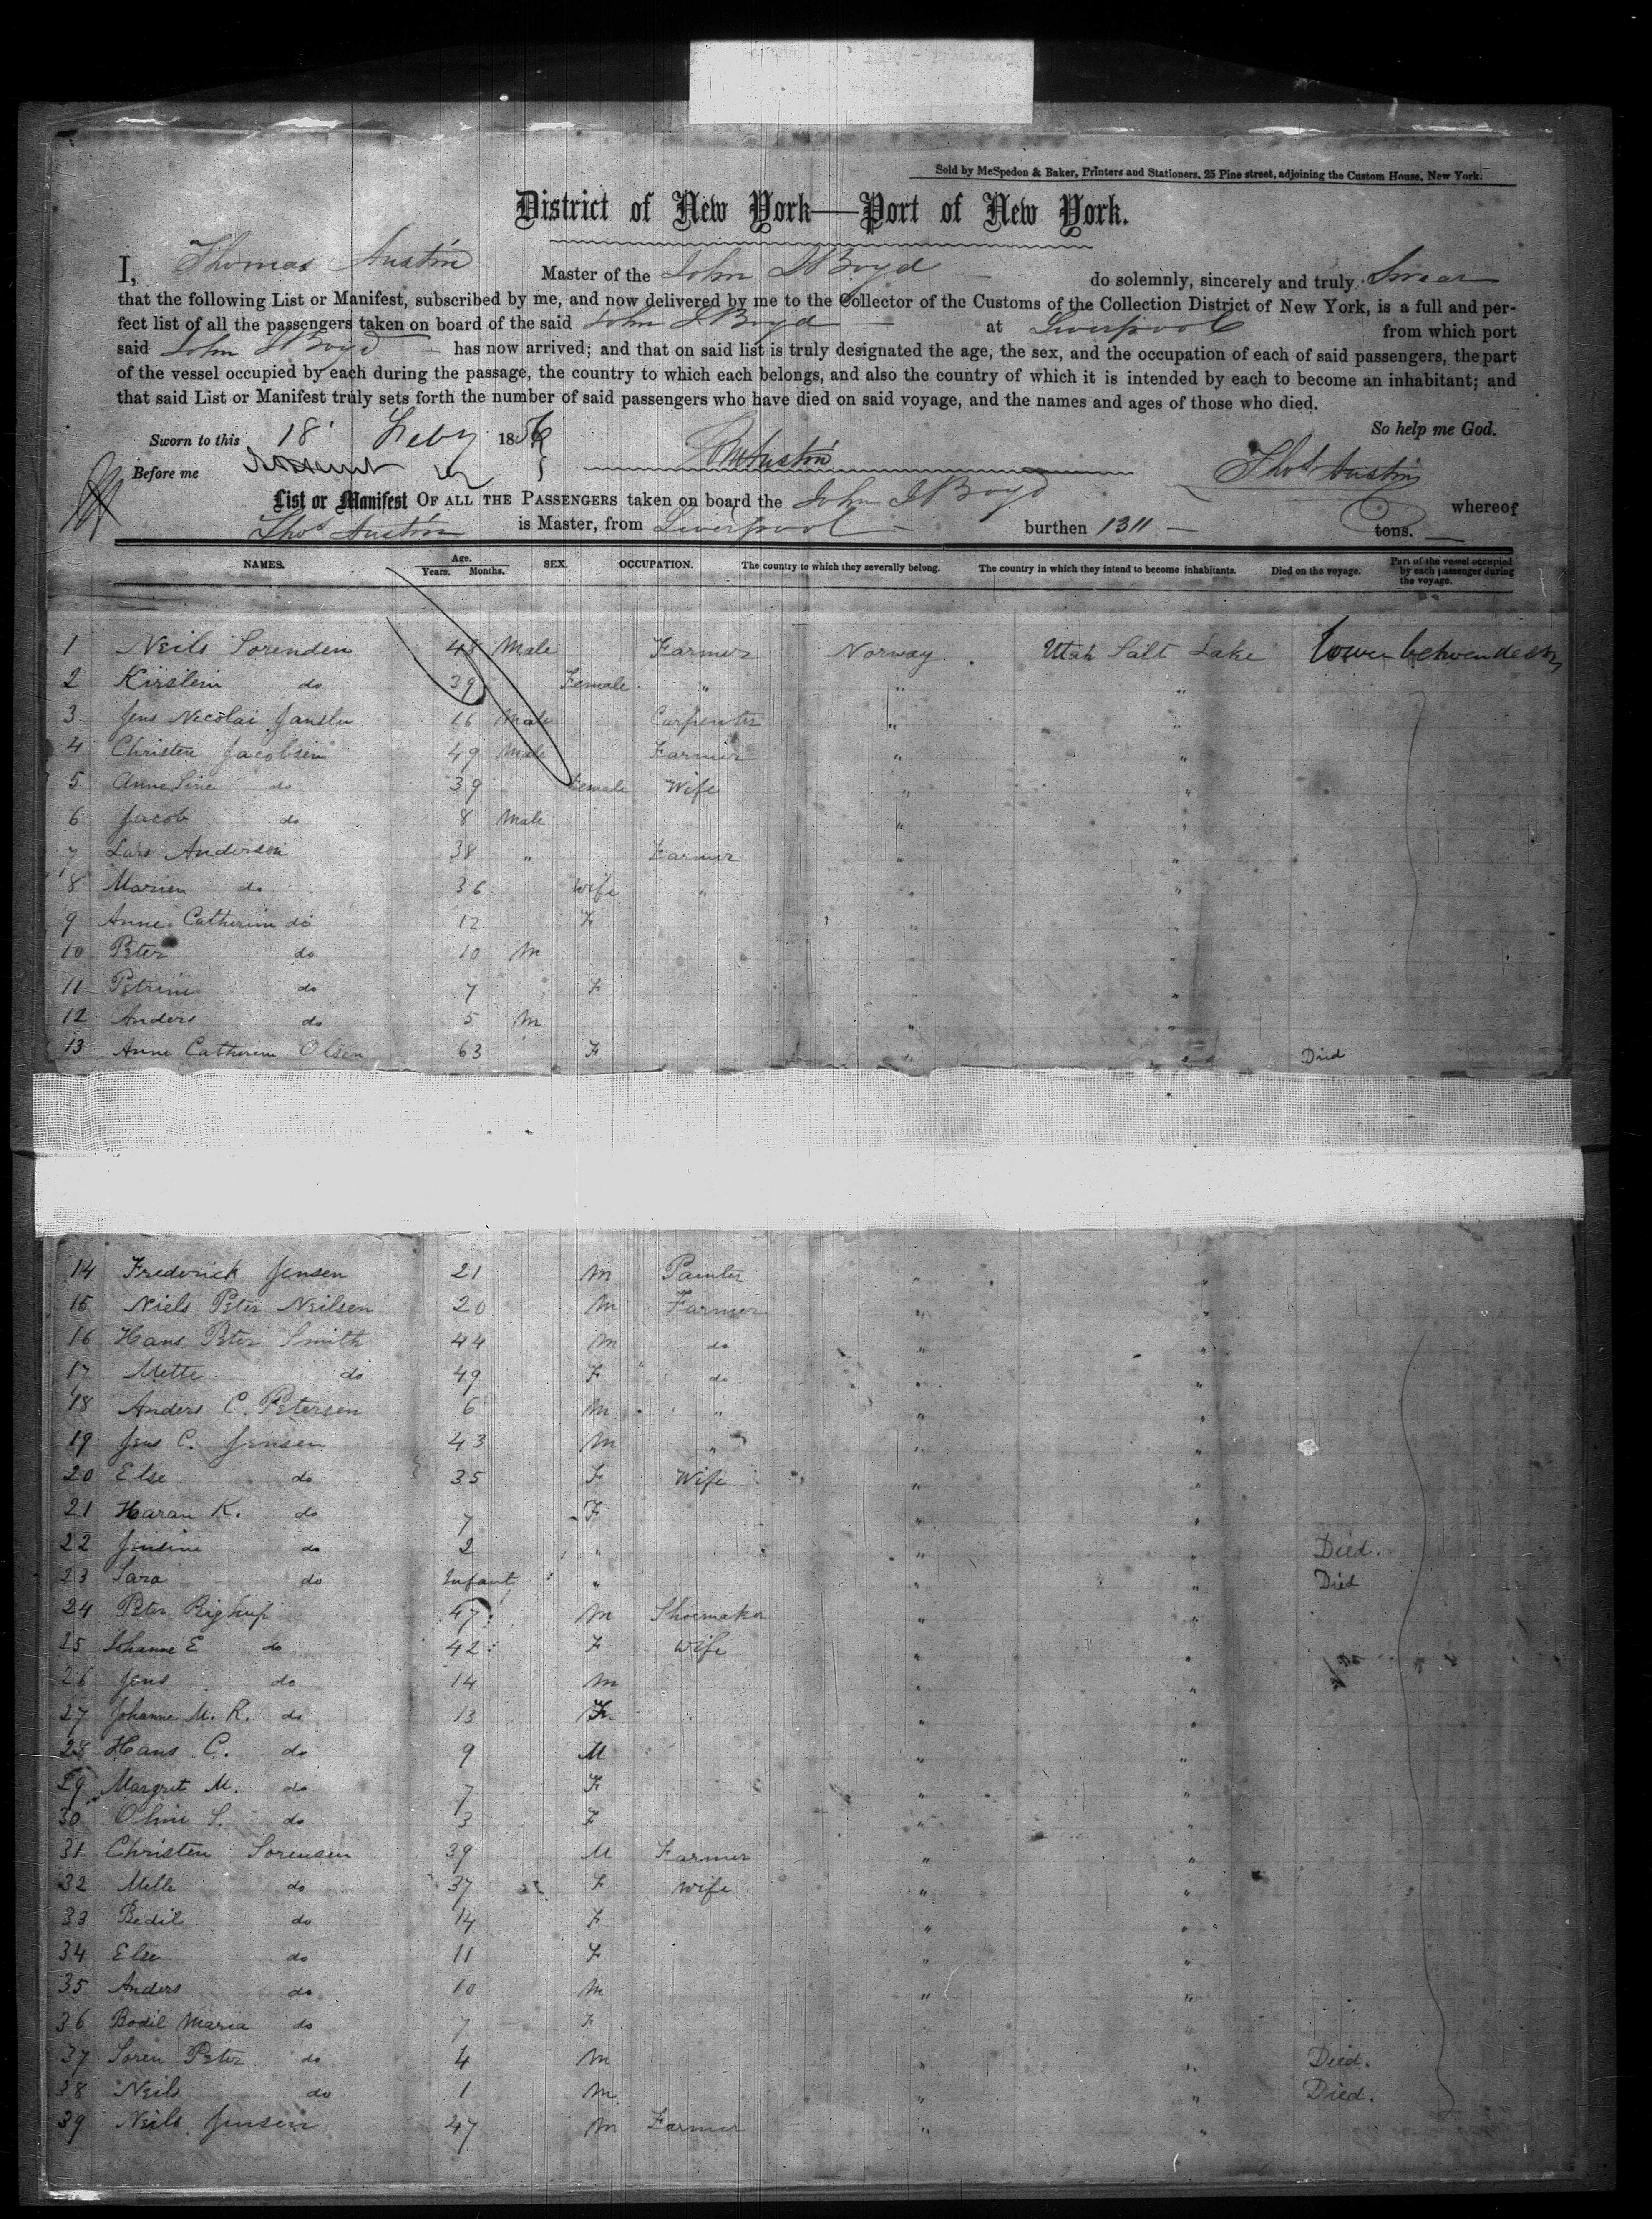 Sold by McSpedon & Baker, Printers and Stationers, 25 Pine street, adjoining the Custom House, New York.
District of New York—Port of New York.
I, Thomas Austin Master of the John J Boyd do solemnly, sincerely and truly Swear
that the following List or Manifest, subscribed by me, and now delivered by me to the Collector of the Customs of the Collection District of New York, is a full and per-
fect list of all the passengers taken on board of the said John J Boyd at Liverpool from which port
said John J Boyd has now arrived; and that on said list is truly designated the age, the sex, and the occupation of each of said passengers, the part
of the vessel occupied by each during the passage, the country to which each belongs, and also the country of which it is intended by each to become an inhabitant; and
that said List or Manifest truly sets forth the number of said passengers who have died on said voyage, and the names and ages of those who died.
So help me God.
Sworn to this 18 Feby 1856
Before me
Thos Austin
List or Manifest OF ALL THE PASSENGERS taken on board the John J Boyd whereof
Thos Austin is Master, from Liverpool burthen 1311 tons.
NAMES. Age. Years. Months. SEX. OCCUPATION. The country to which they severally belong. The country in which they intend to become inhabitants. Died on the voyage. Part of the vessel occupied by each passenger during the voyage.
1 Neils Sorenden 48 Male Farmer Norway Utah Salt Lake Lower between decks
2 Kirstein do 39 Female " " "
3 Jens Nicolai 16 Male Carpenter " "
4 Christen Jacobsen 49 Male Farmer " "
5 Anne Sine do 39 Female Wife " "
6 Jacob do 8 Male " "
7 Lars Andersen 38 " Farmer " "
8 Maren do 36 Wife " " "
9 Anne Catherine do 12 F "
10 Peter do 10 M " "
11 Petrine do 7 F " "
12 Anders do 5 M " "
13 Anne Catherine Olsen 63 F " " Died
14 Frederick Jensen 21 M Painter " "
15 Niels Peter Neilsen 20 M Farmer " "
16 Hans Peter Smith 44 M do " "
17 Mette do 49 F do " "
18 Anders C. Petersen 6 M " " "
19 Jens C. Jensen 43 M " " "
20 Else do 35 F Wife " "
21 Haran K. do 7 F " "
22 Jensine do 2 " " " Died.
23 Sara do Infant " " " Died
24 Peter 47 M Shoemaker " "
25 Johanne E do 42 F Wife " "
26 Jens do 14 M " "
27 Johanne M. R. do 13 F " "
28 Hans C. do 9 M " "
29 Margret M. do 7 F " "
30 Oline S. do 3 F " "
31 Christen Sorensen 39 M Farmer " "
32 Mette do 37 F Wife " "
33 Bedil do 14 F " "
34 Else do 11 F " "
35 Anders do 10 M " "
36 Bodil Maria do 7 F " "
37 Soren Peter do 4 M " " Died.
38 Neils do 1 M " " Died.
39 Neils Jensen 47 M Farmer " "